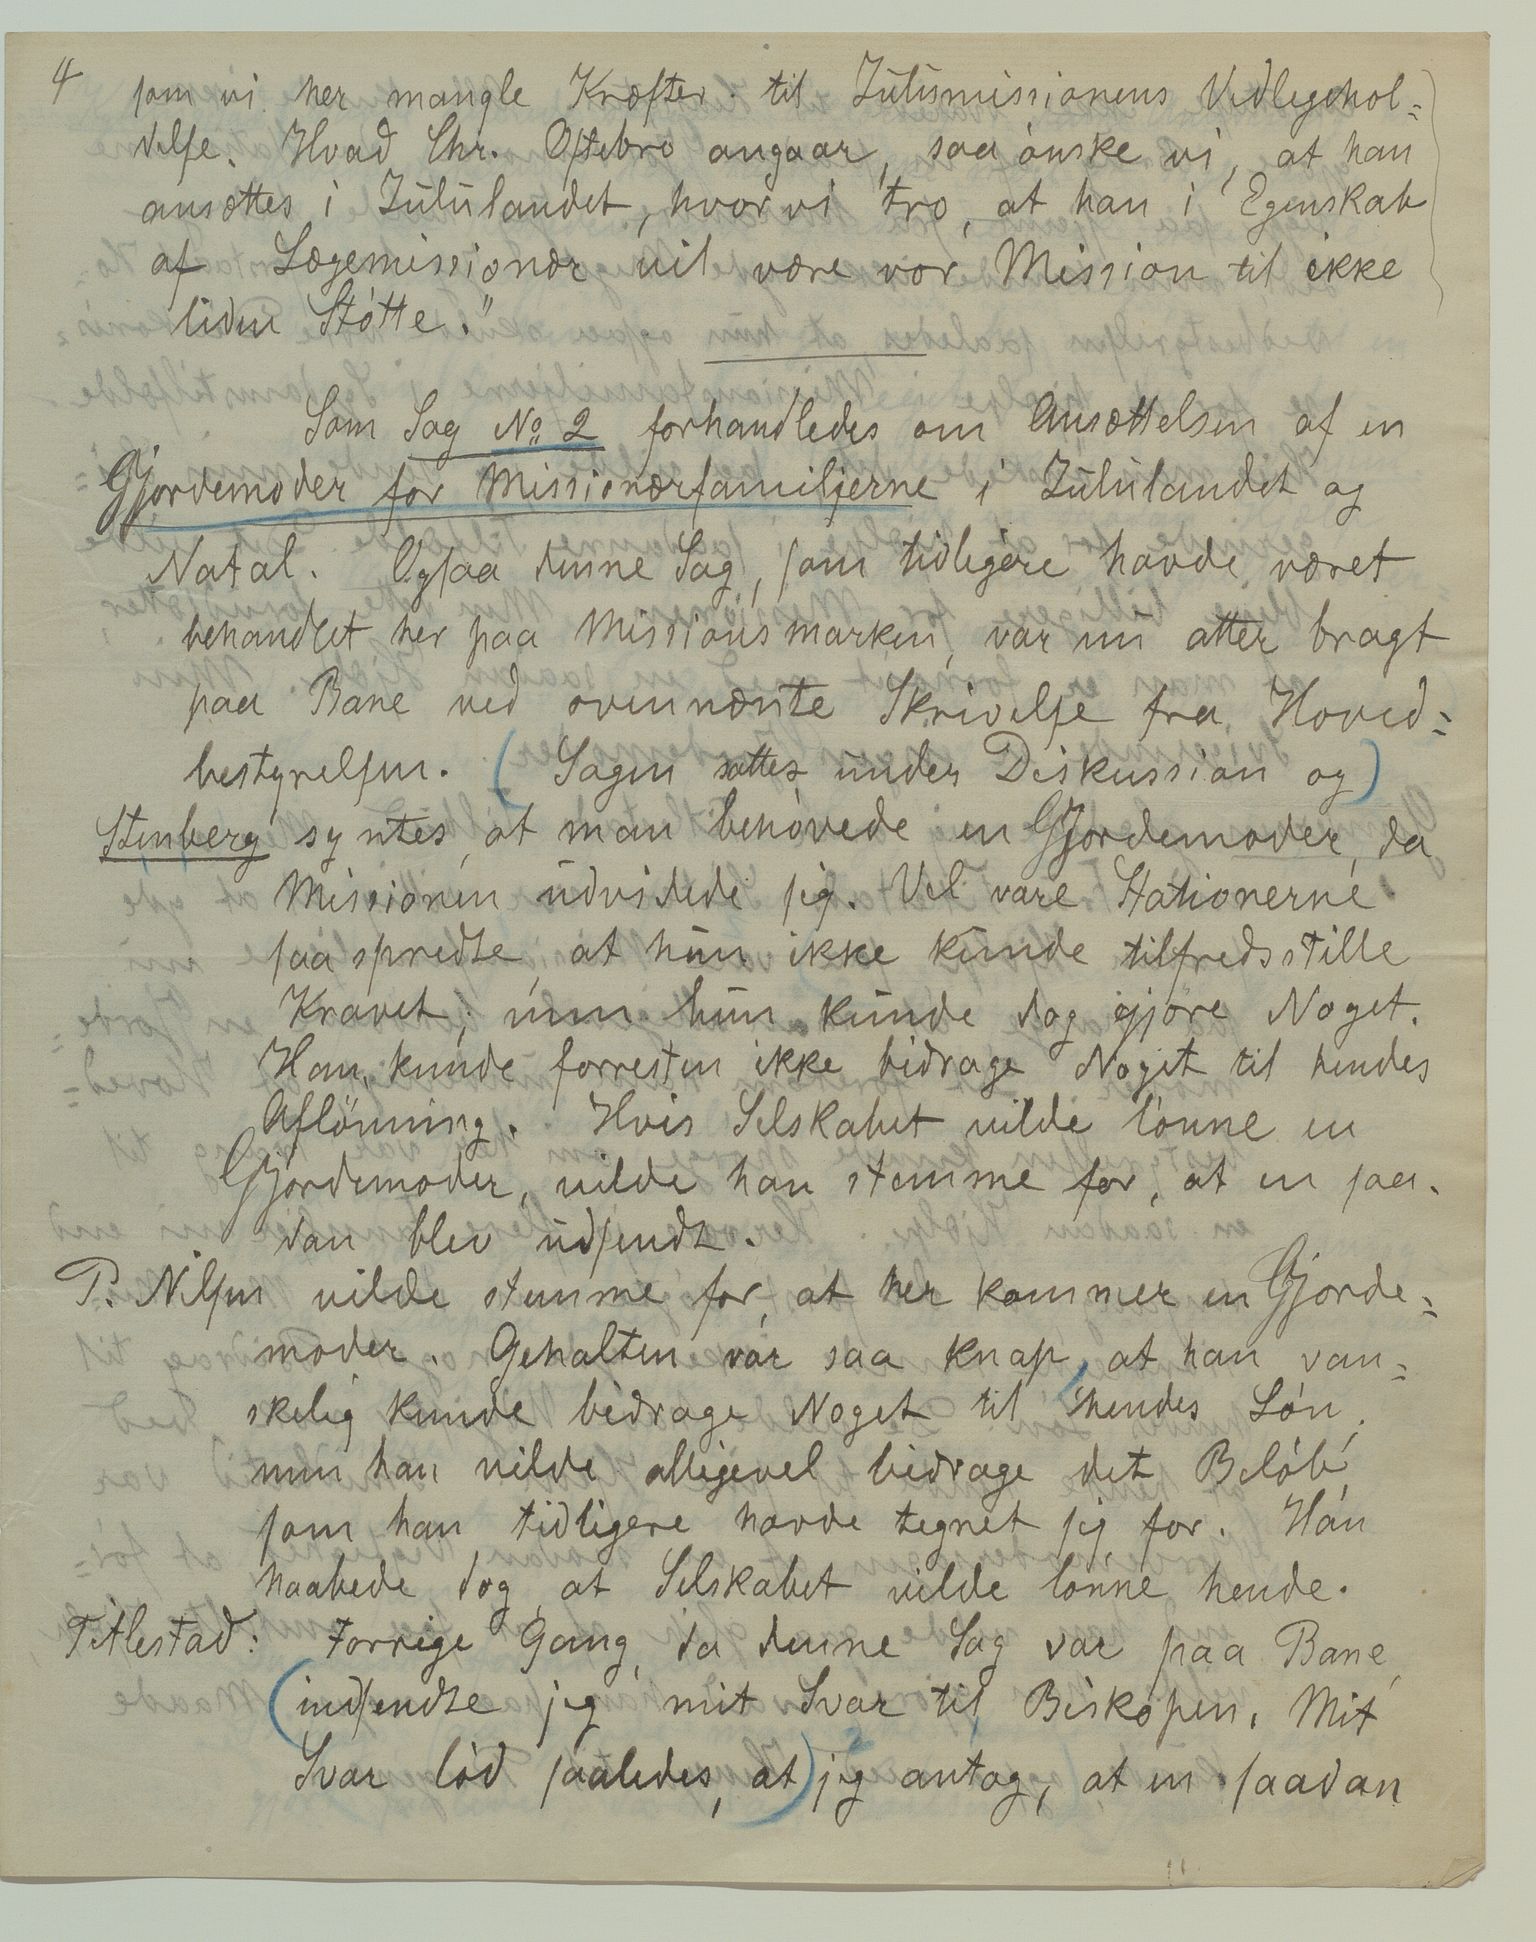 4 som vi her mangle Kræfter til Zulumissionens Vedligehol-
delse. Hvad Chr. Oftebro angaar, saa ønske vi, at han
ansættes i Zululandet, hvor vi tro, at han i Egenskab
af Lægemissionær vil være vor Mission til ikke
liden Støtte."
Som Sag No 2 forhandledes om Ansættelsen af en
Gjordemoder for Missionærfamiljerne i Zululandet og
Natal. Ogsaa denne Sag, som tidligere havde været
behandlet her paa Missionsmarken, var nu atter bragt
paa Bane ved ovennænte Skrivelse fra Hoved-
bestyrelsen. (Sagen sattes under Diskussion og)
Stenberg syntes, at man behøvede en Gjordemoder, da
Missionen udvidede sig. Vel vare Stationerne
saa spredte, at hun ikke kunde tilfredsstille
Kravet; men hun kunde dog gjøre Noget.
Han kunde forresten ikke bidrage Noget til hendes
Aflønning. Hvis Selskabet vilde lønne en
Gjordemoder, vilde han stemme for, at en saa-
dan blev udsendt.
P. Nilsen vilde stemme for, at her kommer en Gjorde-
moder. Gehalten var saa knap, at han van-
skelig kunde bidrage Noget til hendes Løn,
men han vilde alligevel bidrage det Beløb,
som han tidligere havde tegnet sig for. Han
haabede dog, at Selskabet vilde lønne hende.
Titlestad: Forrige Gang, da denne Sag var paa Bane,
(indsendte jeg mit Svar til Biskopen. Mit
Svar lød saaledes, at) jeg antog, at en saadan